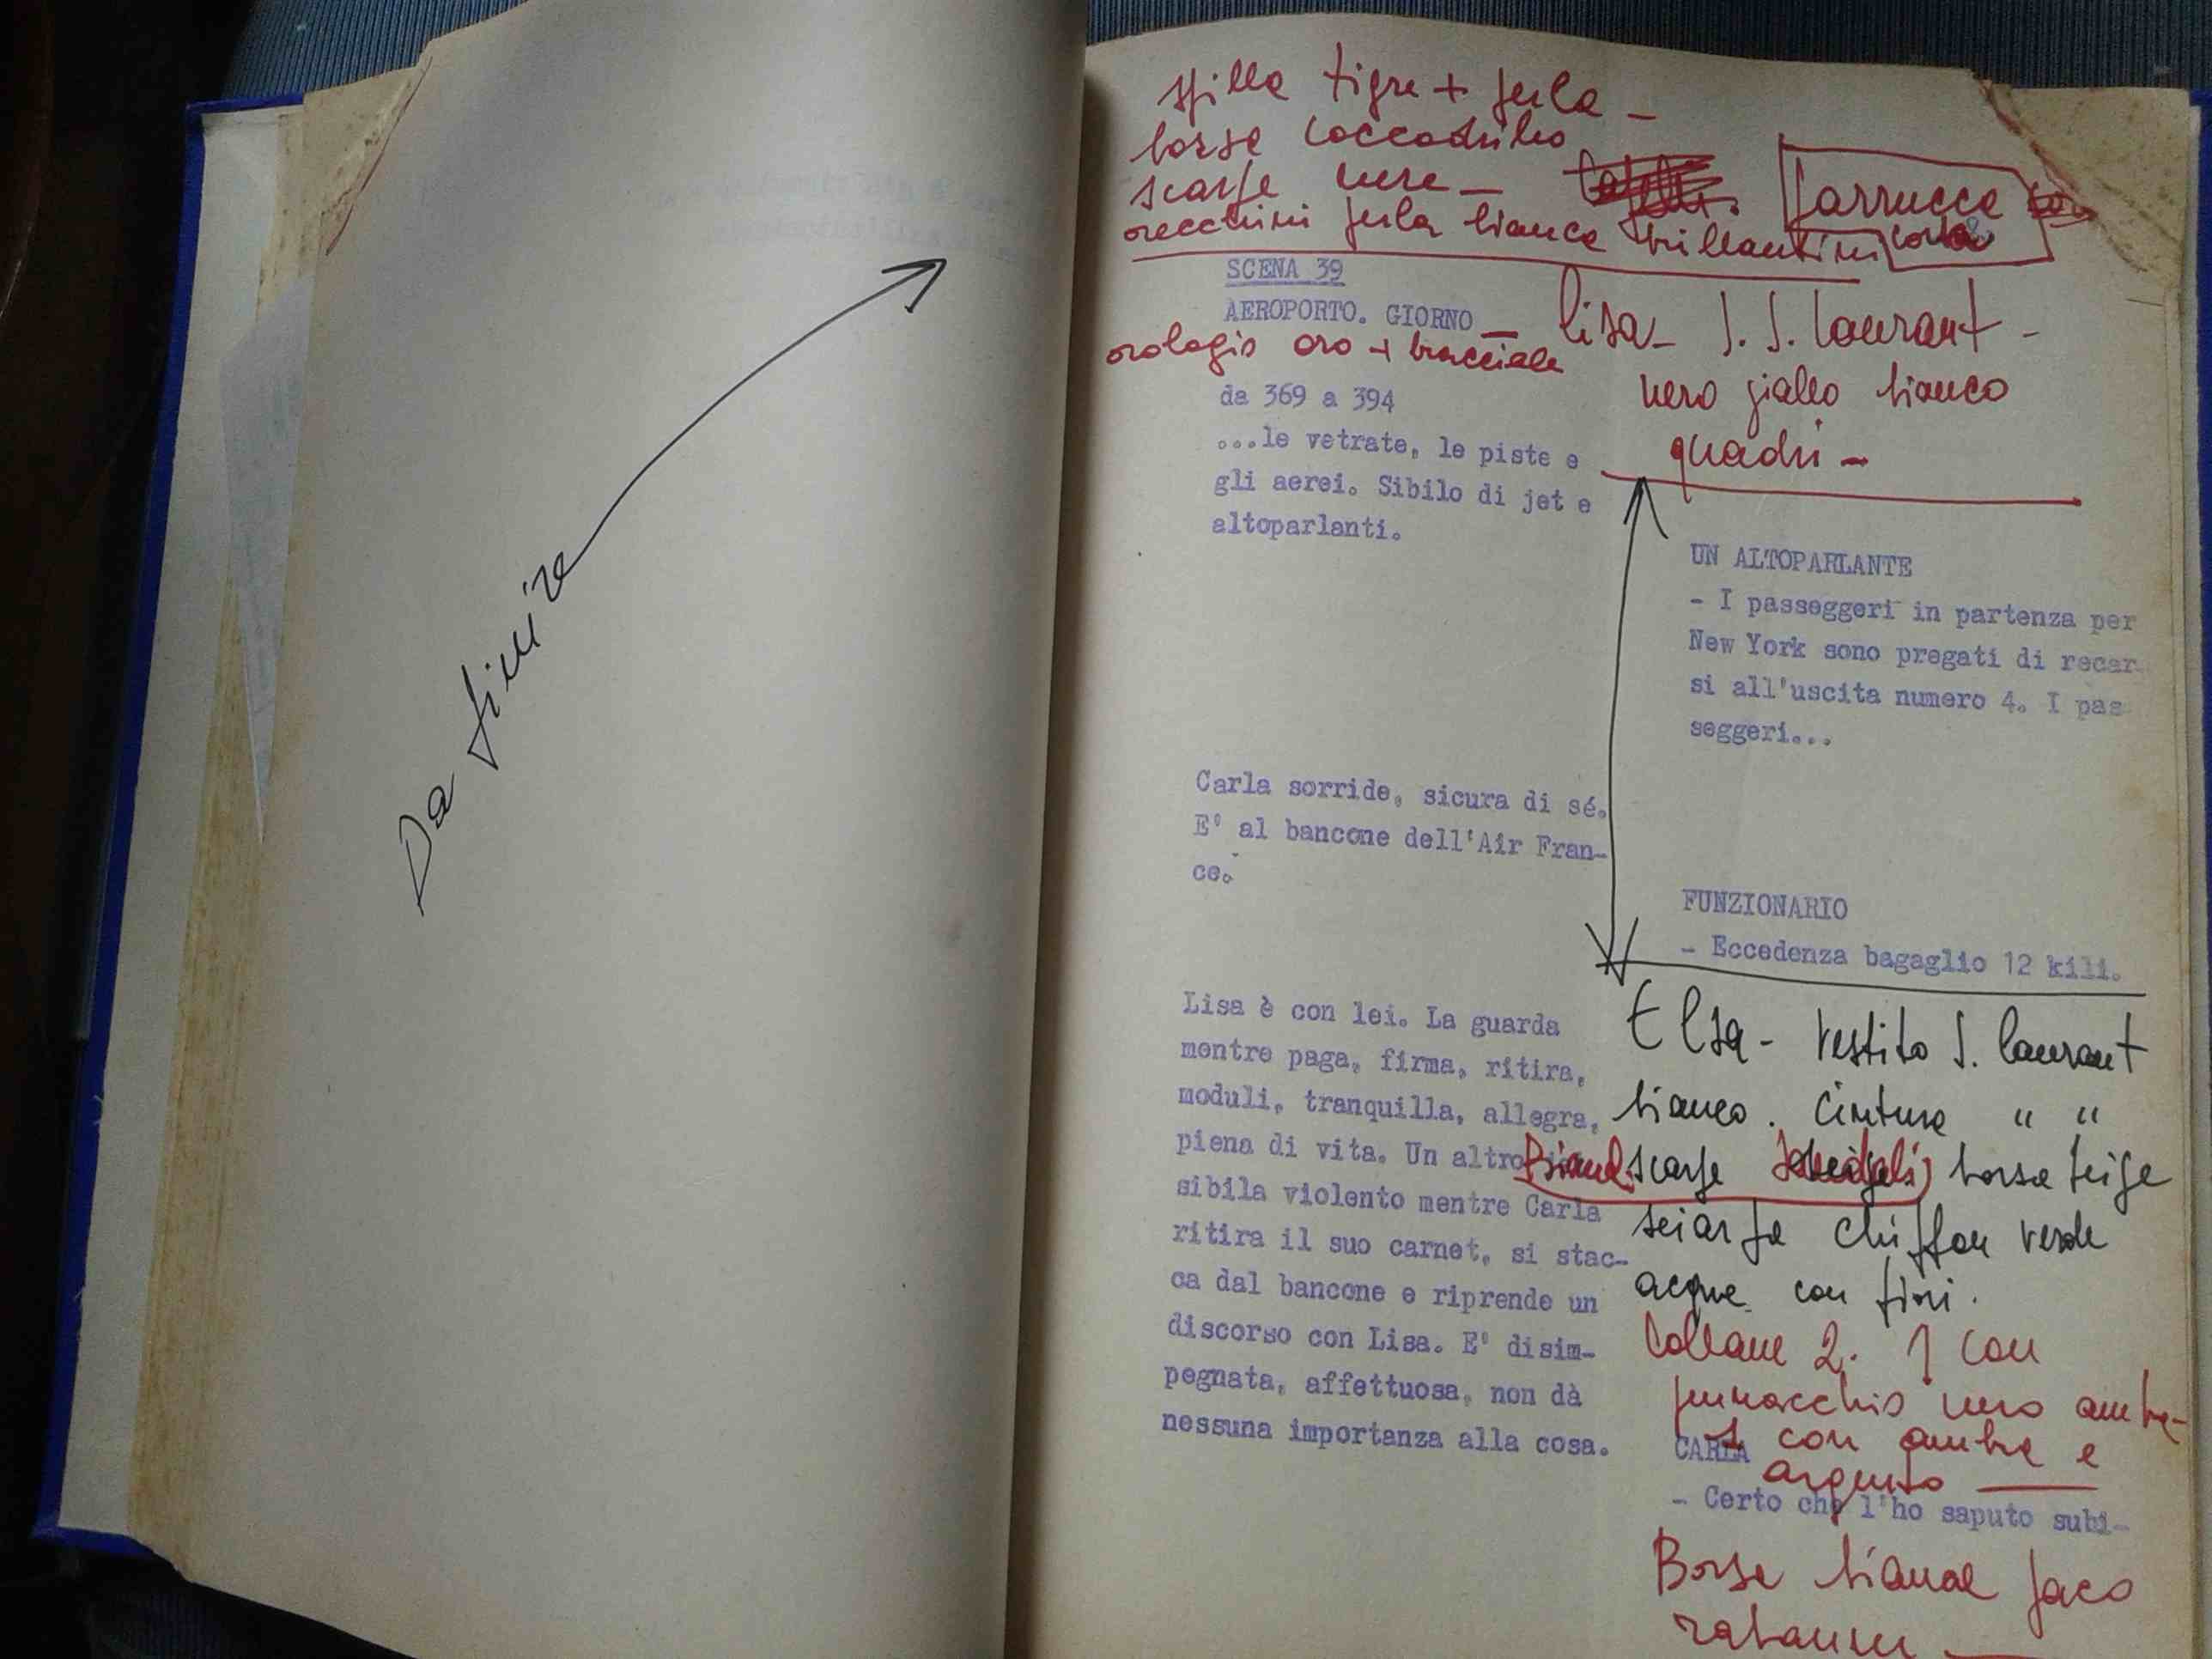 Da finire
spilla tigre + perla -
borse coccodrillo
scarpe nere -
Parrucca
corta
orecchini perla bianca brillantini
SCENA 39
AEROPORTO. GIORNO -
lisa - S. S. Laurant -
orologio oro + bracciale
nero giallo bianco
quadri -
da 369 a 394
...le vetrate, le piste e
gli aerei. Sibilo di jet e
altoparlanti.
UN ALTOPARLANTE
- I passeggeri in partenza per
New York sono pregati di recar
si all'uscita numero 4. I pas
seggeri...
Carla sorride, sicura di sé.
E' al bancone dell'Air Fran-
ce.
FUNZIONARIO
- Eccedenza bagaglio 12 kili.
Lisa è con lei. La guarda
mentre paga, firma, ritira,
moduli, tranquilla, allegra,
piena di vita. Un altro
sibila violento mentre Carla
ritira il suo carnet, si stac-
ca dal bancone e riprende un
discorso con Lisa. E' disim-
pegnata, affettuosa, non dà
nessuna importanza alla cosa.
Elsa - vestito S. Laurant
bianco. Cintura " "
scarpe borsa beige
sciarpa chiffon verde
acqua con fiori.
Collane 2. 1 con
pennacchio nero ambra-
1 con ambra e
argento
CARLA
- Certo che l'ho saputo subi-
Borsa bianca paco
rabanne